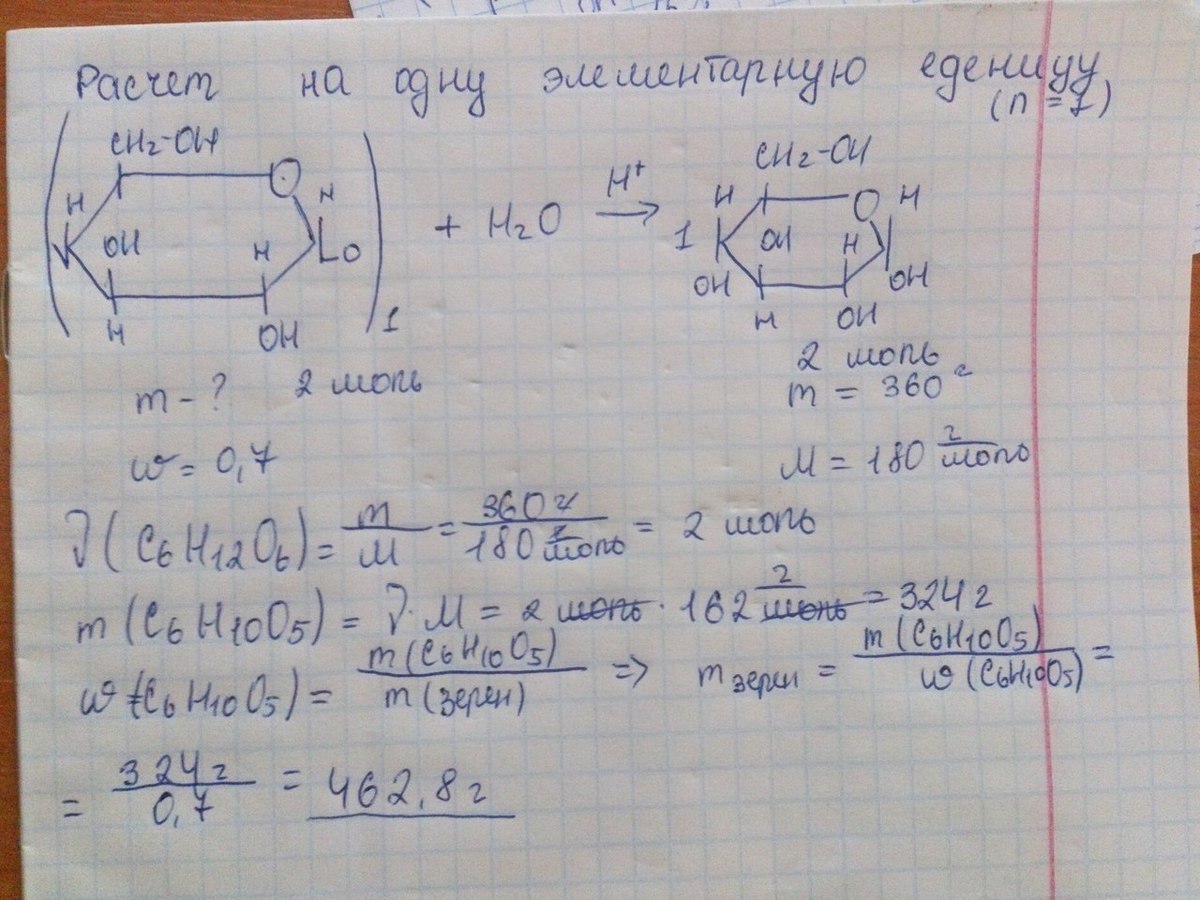 Расчет на одну элементарную еденицу
(n = 1)
CH2-OH
O
H
H
OH
H
O
H
OH
1
+ H2O
H+
→
1
CH2-OH
H
O
H
OH
H
OH
OH
H
OH
m - ? 2 моль
2 моль
m = 360 г
w = 0,7
M = 180 г/моль
ν(C6H12O6) = m/M = 360 г/180 г/моль = 2 моль
m(C6H10O5) = ν·M = 2 моль · 162 г/моль = 324 г
w(C6H10O5) = m(C6H10O5)/m(зерен) => m зерен = m(C6H10O5)/w(C6H10O5) =
= 324 г/0,7 = 462,8 г